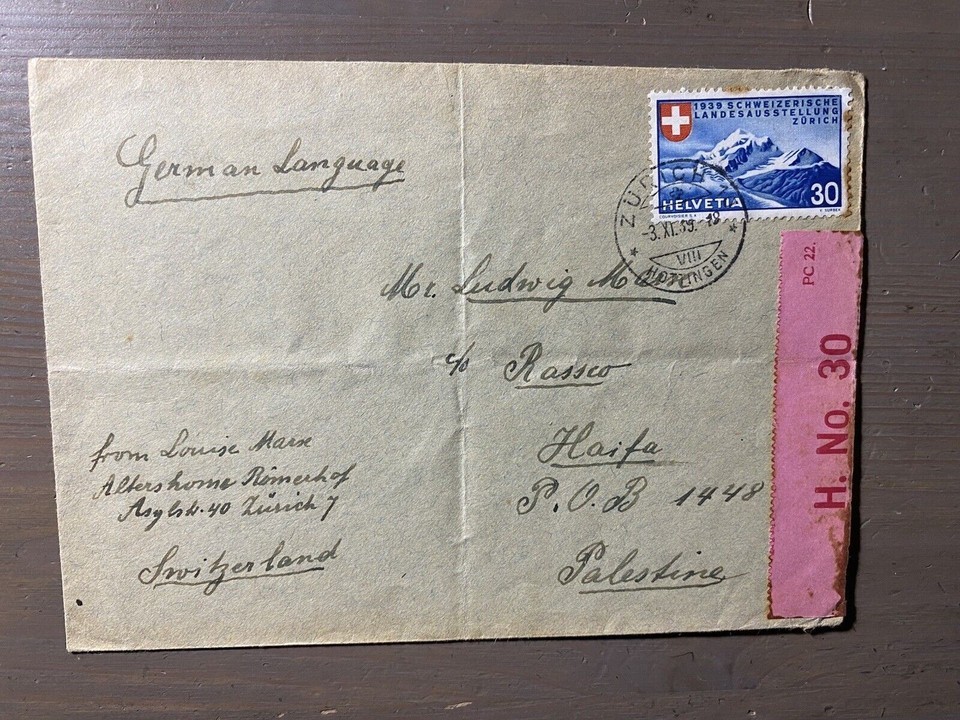 German Language
1939 SCHWEIZERISCHE
LANDESAUSSTELLUNG
ZÜRICH
HELVETIA 30
COURVOISIER S.A.
ZÜRICH
-3.XI.39.-18
VIII
HOTTINGEN
PC 22.
H. No. 30
Mr. Ludwig
c/o Rassco
Haifa
P.O.B 1448
Palestine
from Louise Marx
Altersheim Römerhof
Asylstr. 40 Zürich 7
Switzerland